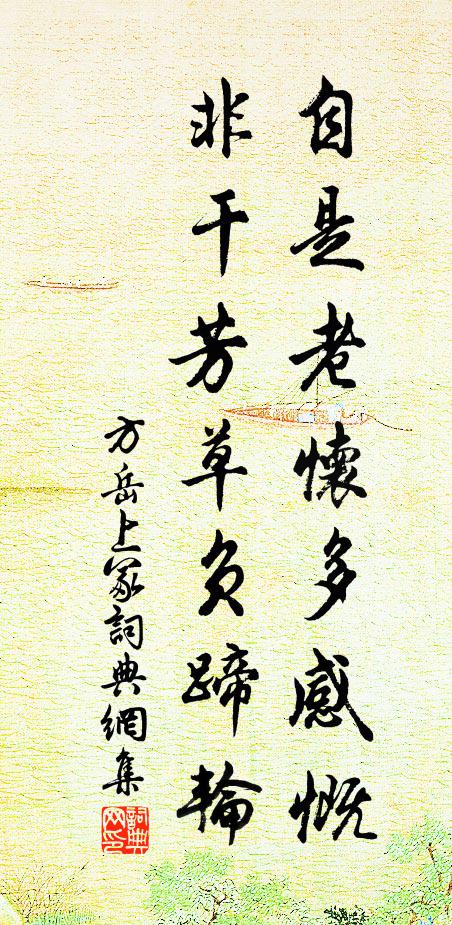 自是老懷多感慨
非干芳草負蹄輪
方岳上冢詞典網集
詞典网印